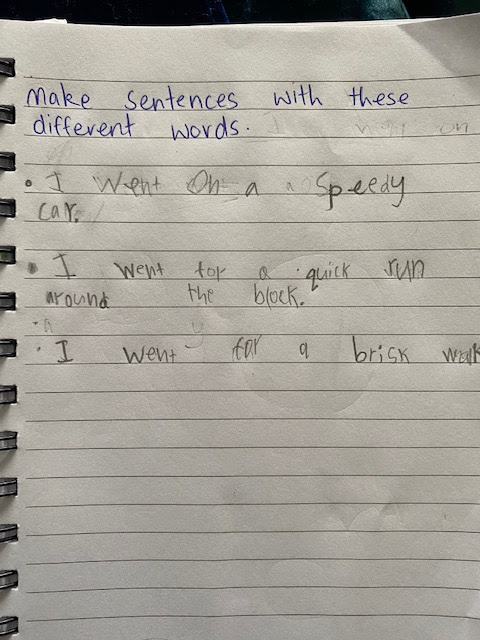 Make sentences with these
different words.
• I went on a speedy
car.
• I went for a quick run
around the block.
• I went for a brisk walk